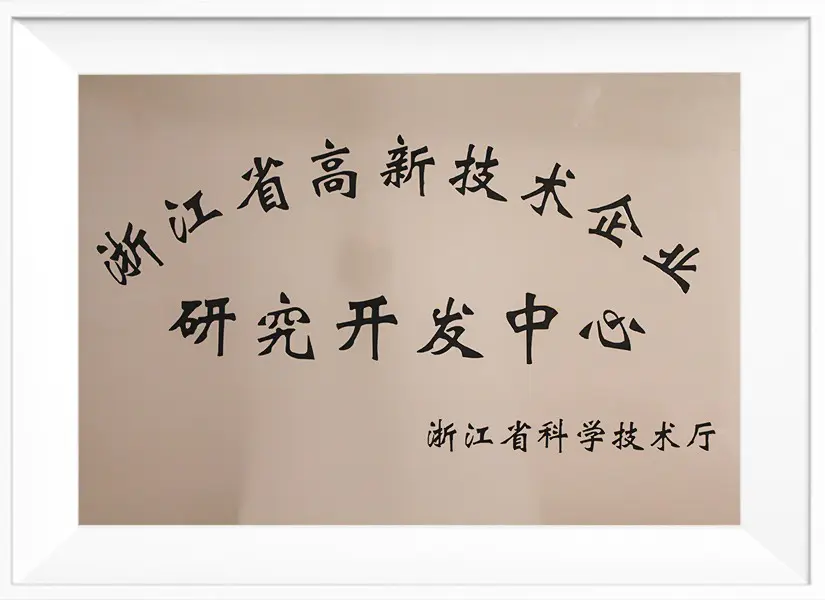 浙江省高新技术企业
研究开发中心
浙江省科学技术厅